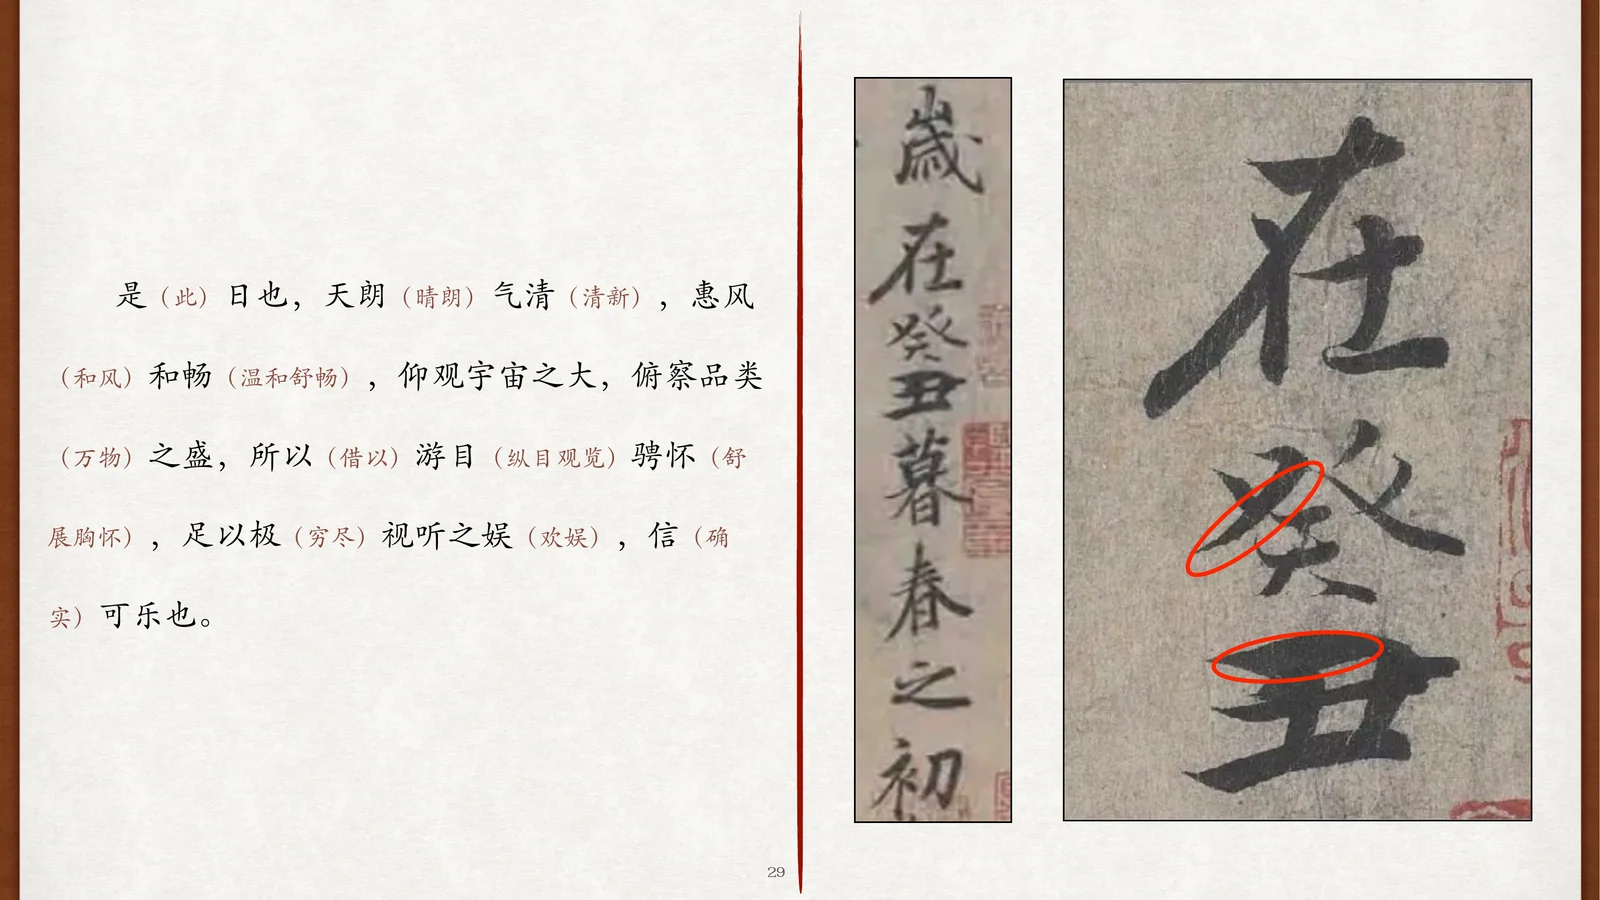 是（此）日也，天朗（晴朗）气清（清新），惠风
（和风）和畅（温和舒畅），仰观宇宙之大，俯察品类
（万物）之盛，所以（借以）游目（纵目观览）骋怀（舒
展胸怀），足以极（穷尽）视听之娱（欢娱），信（确
实）可乐也。
29
歲在癸丑暮春之初
在癸丑